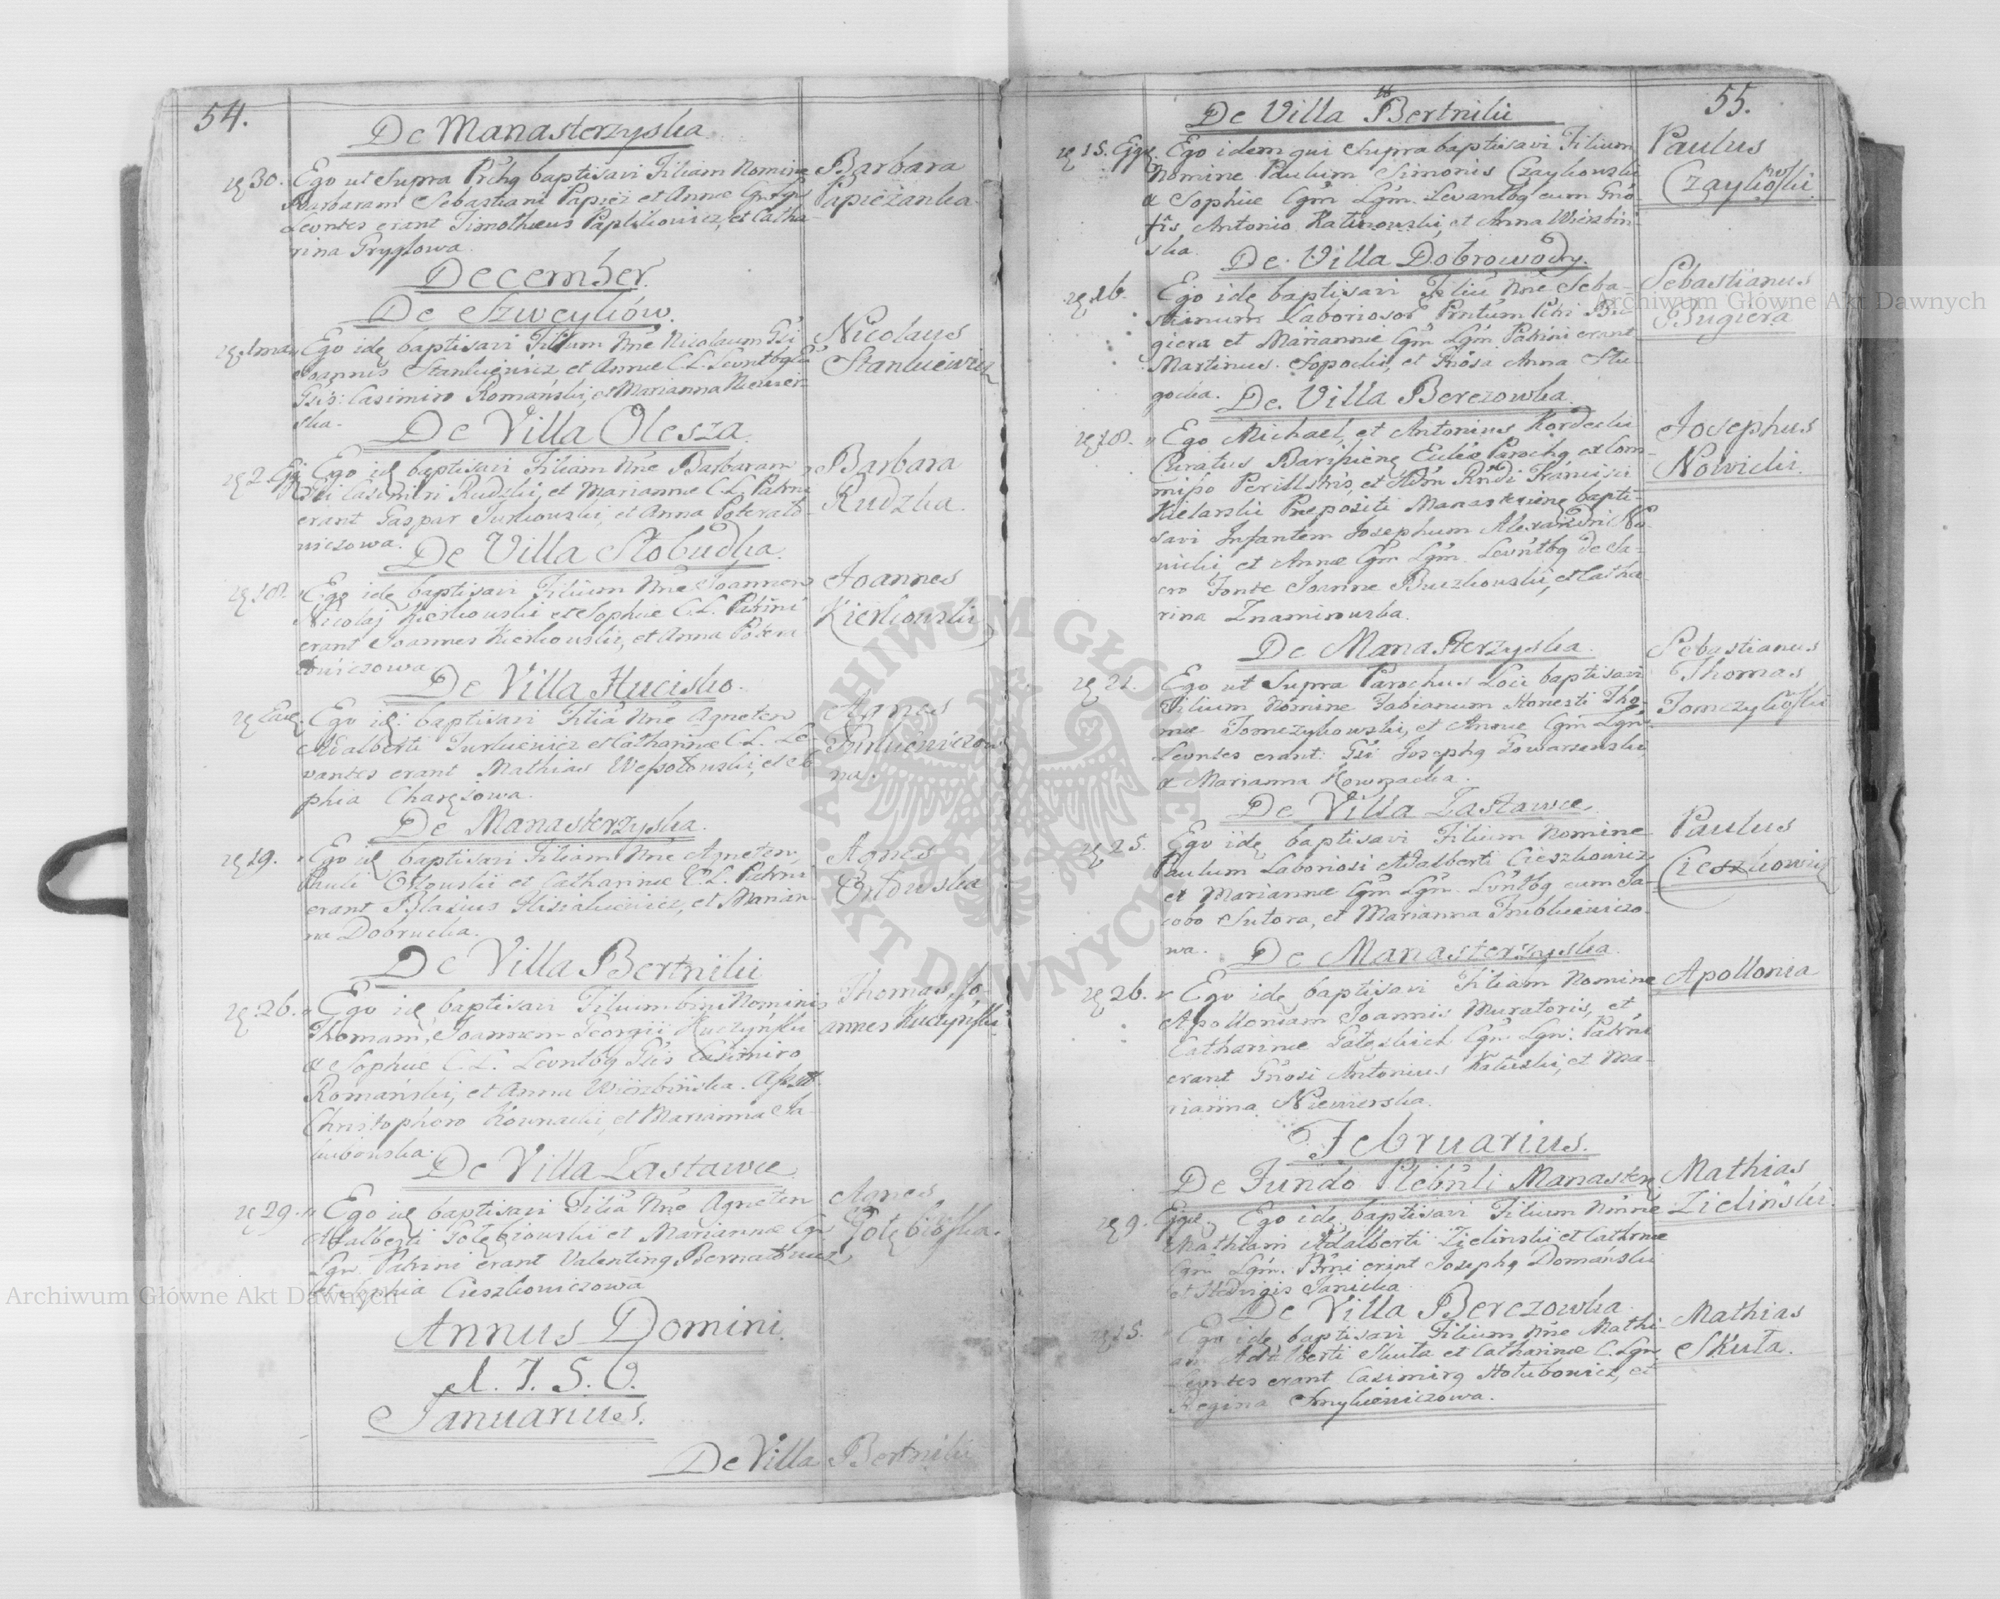 54.
De Manasterzyska
30. Ego ut Supra Prchg baptisavi Filiam Nomine
Barbaram Sebastiani Papież et Annæ Cgn Lgn
Levntes erant Timotheus Paplikowicz, et Catha-
rina Gryglowa
Barbara
Papieżanka
December.
De Szweyków.
1ma. Ego idę baptisavi Filium Nne Nicolaum
Joannis Stankiewicz et Annæ C.L. Levntbg
Casimiro Romański, et Marianna Niewier-
ska.
Nicolaus
Stankiewicz
De Villa Olesza
2. Ego idę baptisavi Filiam Nne Barbaram
Casimiri Rudzki, et Mariannæ C.L. Patrni
erant Gaspar Turkowski, et Anna Poterało-
wiczowa.
Barbara
Rudzka.
De Villa Słobudka
18. Ego idę baptisavi Filium Nne Joannem
Nicolaj Kierkowski et Sophiæ C.L. Patrini
erant Joannes Kierkowski, et Anna Potera
łowiczowa
Joannes
Kierkowski
De Villa Hucisko.
Ego idę baptisavi Filiā Nne Agneten
Adalberti Turkiewicz et Catharinæ C.L. Le-
vantes erant Mathias Wessołowski, et So-
phia Charęzowa.
Agnes
Turkiewiczow
na.
De Manasterzyska.
19. Ego idę baptisavi Filiam Nne Agneten,
Pauli Orłowski et Catharinæ C.L. Patrni
erant Blasius et Marian-
na Dobrucka.
Agnes
Orłowska
De Villa Bertniki
26. Ego idę baptisavi Filium bini Nominis
Thomam, Joannem Georgii Kuczyński
& Sophiæ C.L. Levntbg Casimiro
Romański, et Anna Wierzbińska.
Christophoro Kownacki, et Marianna Ja-
kubowska.
Thomas, Jo-
annes Kuczyński
De Villa Zastawce
29. Ego idę baptisavi Filiā Nne Agneten
Adalberti Gołębiowski et Mariannæ Cgn
Lgn. Patrini erant Valenting Bernatowicz
et Sophia Cieszkowiczowa
Agnes
Gołębioska.
Annus Domini
1.7.5.0.
Januarius.
De Villa Bertniki
55.
De Villa Bertniki
15. Ego idem qui Supra baptisavi Filium
Nomine Paulum Simonis Czaykowski
& Sophiæ Cgm Lgm. Levantbg eum
Antonio Katinowski, et Anna Wierzbiń-
ska.
Paulus
Czaykoski
De Villa Dobrowody.
16. Ego idę baptisavi Filiū Nne Seba-
stianum Laboriosor Prntum Bu-
giera et Mariannæ Cgm Lgm. Patrini erant
Martinus Sopocki, et Anna Stu-
gocka.
Sebastianus
Bugiera
De Villa Berezowka
18. Ego Michael, et Antonius Kordecki
Curatus Eccliæ Parochg ex Com-
misso Perillstris, et Rndi Francisci
Kielarski Præpositi bapti-
savi Infantem Josephum Alexandri No-
wicki, et Annæ Cgm Lgm Levntbg de Sa-
cro Fonte Joanne Buczkowski, et Catha-
rina Znamirowska.
Josephus
Nowicki.
De Manasterzyska
21. Ego ut Supra Parochus Loci baptisavi
Filium Nomine Fabianum Honesti Tho-
mæ Tomczykowski, et Annæ Cgm Lgn
Levntes erant: Josephg Towarzewski,
& Marianna Kowrzacka.
Sebastianus
Thomas
Tomczykoski
De Villa Zastawce
25. Ego idę baptisavi Filium Nomine
Paulum Laboriosi Adalberti Cieszkowicz
et Mariannæ Cgm Lgm. Lvntbg eum Ja-
cobo Sutora, et Marianna Trublkiewiczo-
wa.
Paulus
Cieszkowicz
De Manasterzyska
26. Ego idę baptisavi Filiam Nomine
Apolloniam Joannis Muratoris, et
Catharinæ Cgn Lgn: Patrni
erant Gnosi Antonius Katuski, et Ma-
rianna Niewierska.
Apollonia
Februarius.
De Fundo Plebnli Manaster
9. Ego idę baptisavi Filium Nmne
Mathiam Adalberti Zielinski et Cathrnæ
Cgm Lgm. erant Josephg Domański
et Hedvigis Janicka
Mathias
Zielinski.
De Villa Berezowka
15. Ego idę baptisavi Filium Nne Mathi-
am Adalberti Skuta et Catharinæ C. Lgn
Levntes erant Casimirg Hołubowicz, et
Regina Smykiewiczowa.
Mathias
Skuta.
Archiwum Główne Akt Dawnych
Archiwum Główne Akt Dawnych
ARCHIWUM GŁÓWNE AKT DAWNYCH